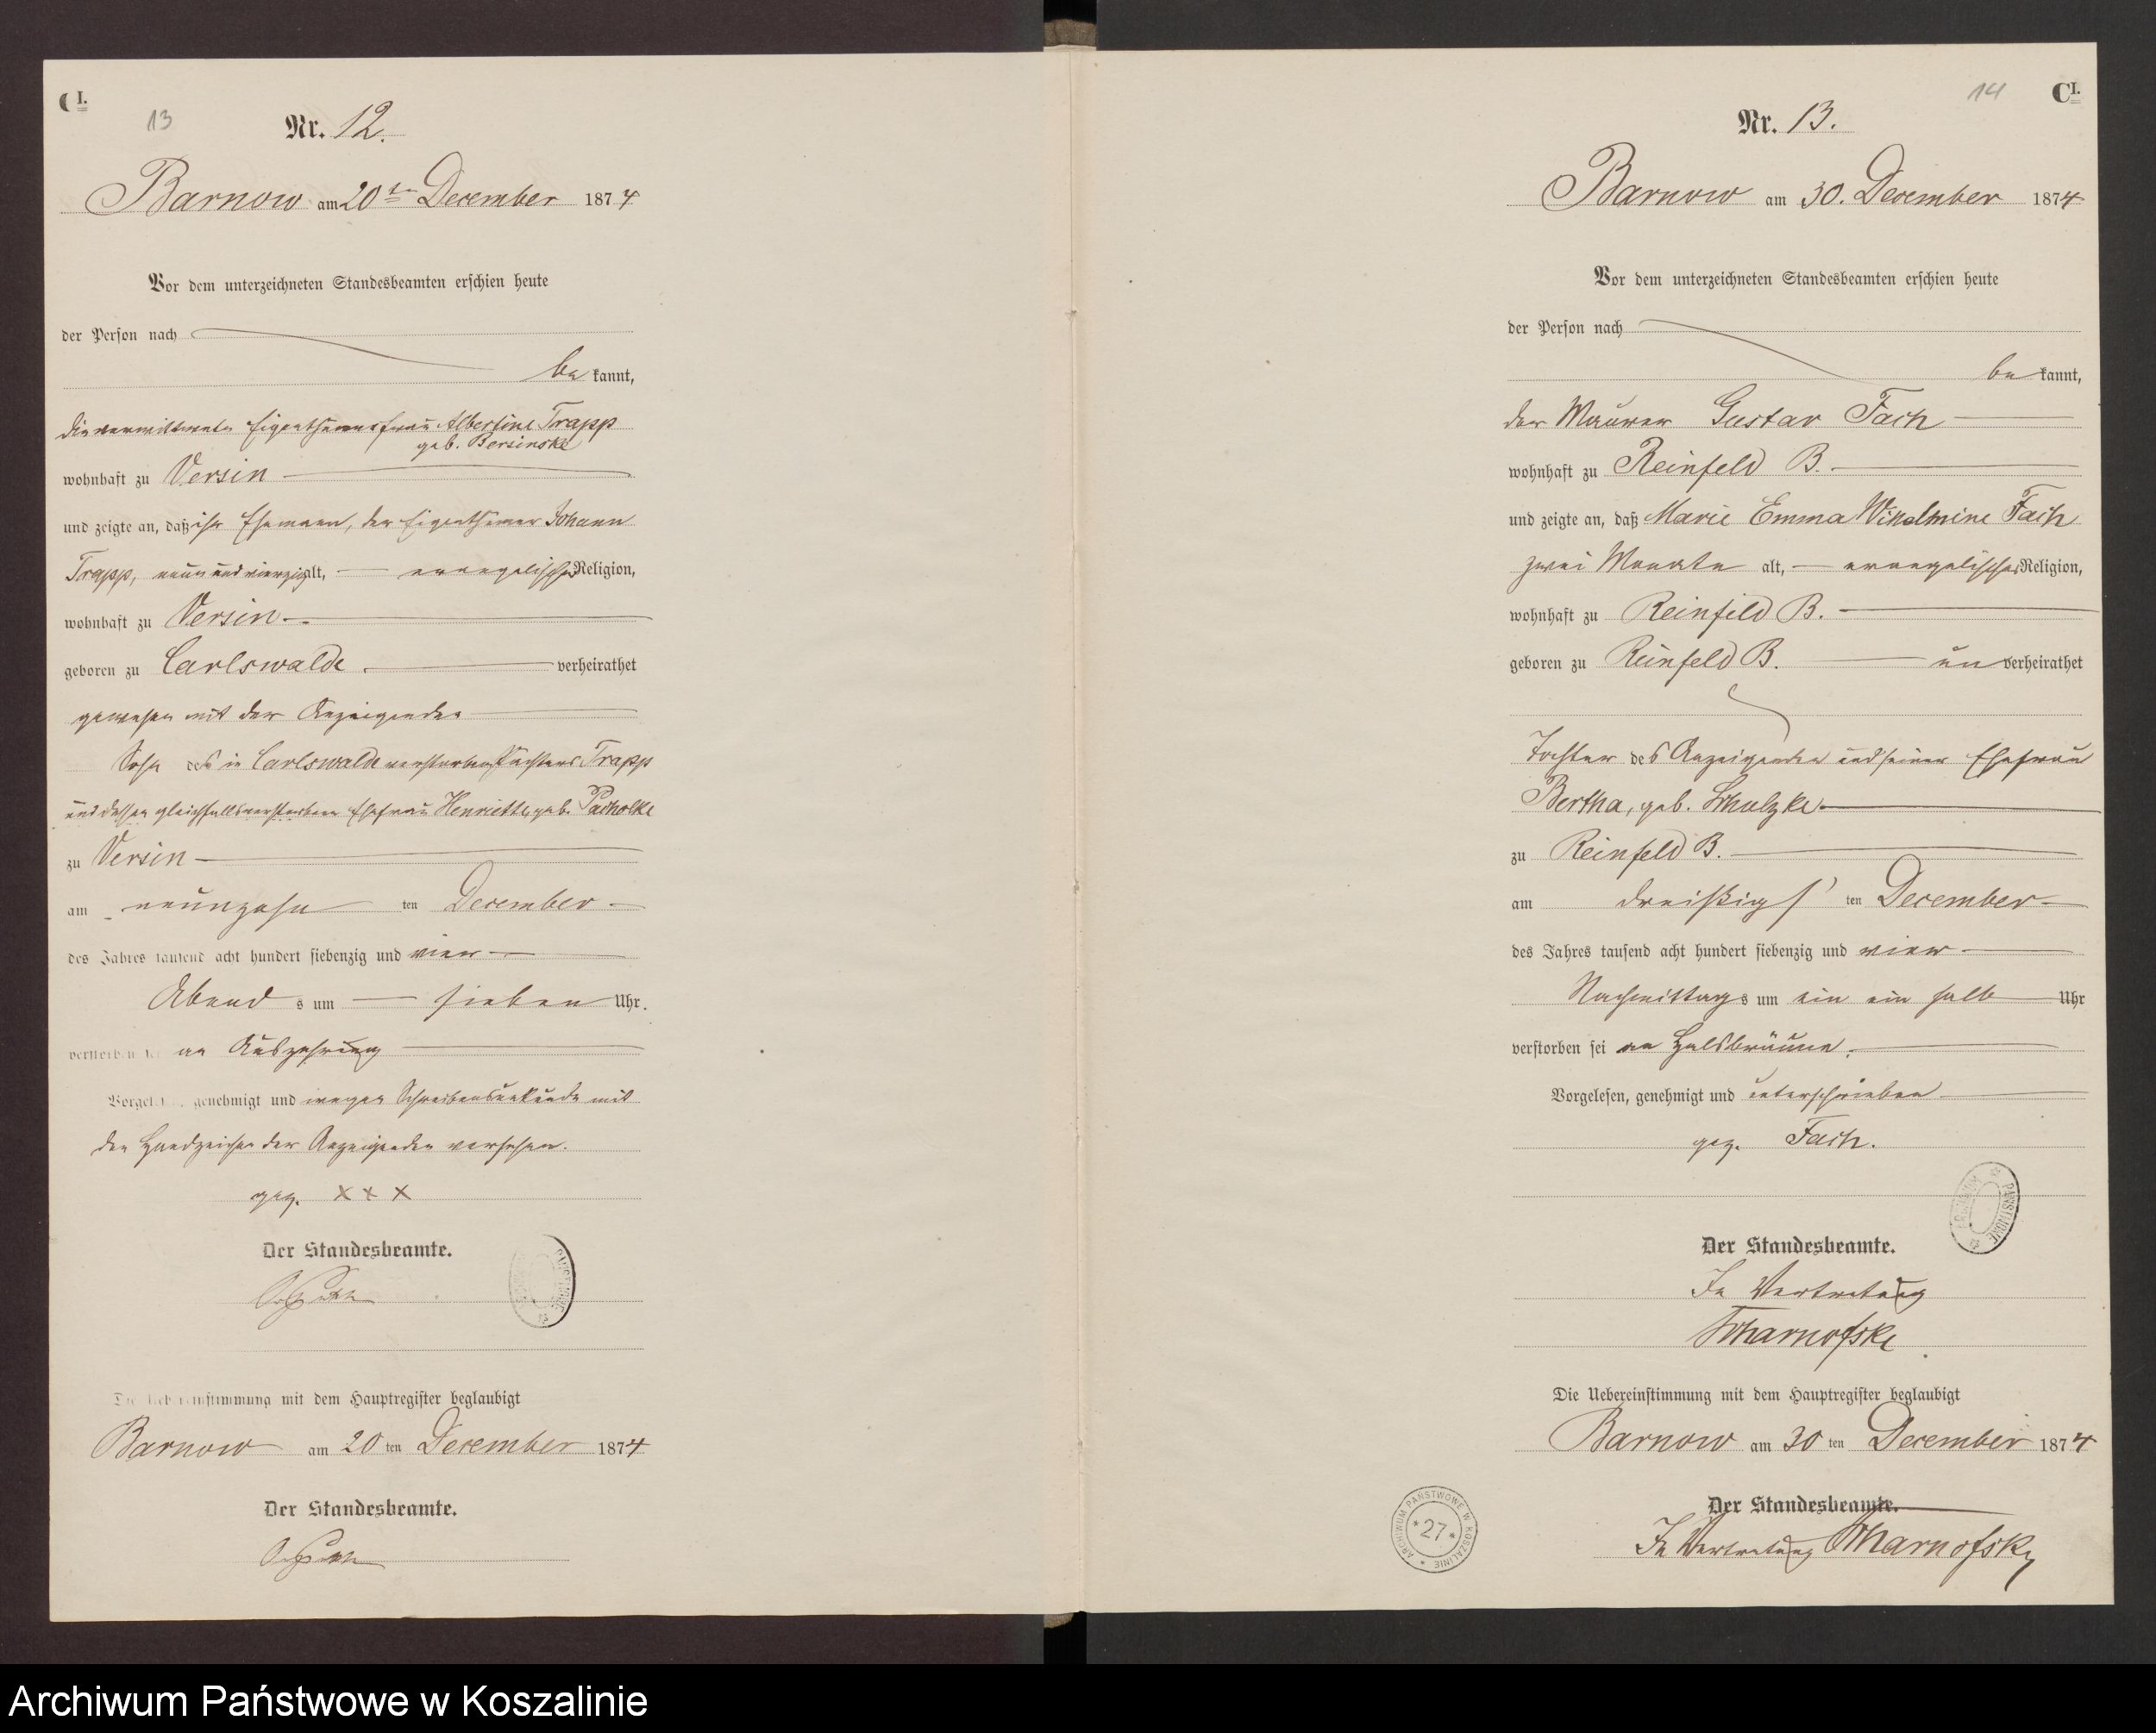 CI.
13
Nr. 12.
Barnow am 20ten December 1874
Vor dem unterzeichneten Standesbeamten erschien heute
der Person nach
be kannt,
die verwittwete Eigenthümerfrau Albertine Trapp
geb. Bersinske
wohnhaft zu Versin
und zeigte an, daß ihr Ehemann, der Eigenthümer Johann
Trapp, neun und vierzig alt, evangelischer Religion,
wohnhaft zu Versin
geboren zu Carlswalde. verheirathet
gewesen mit der Anzeigenden
Sohn des in Carlswalde verstorbenen Trapp
und dessen gleichfalls verstorbene Ehefrau Henriette, geb. Pacholke
zu Versin
am neunzehn ten December
des Jahres tausend acht hundert siebenzig und vier
Abend s um sieben Uhr.
verstorben sei an Auszehrung
Vorgelesen, genehmigt und wegen Schreibensunkunde mit
den Handzeichen der Anzeigenden versehen.
gez. X X X
Der Standesbeamte.
Die Uebereinstimmung mit dem Hauptregister beglaubigt
Barnow am 20 ten December 1874
Der Standesbeamte.
14
CI.
Nr. 13.
Barnow am 30. December 1874
Vor dem unterzeichneten Standesbeamten erschien heute
der Person nach
be kannt,
der Maurer Gustav Fach
wohnhaft zu Reinfeld B.
und zeigte an, daß Marie Emma Wilhelmine Fach
zwei Monate alt, evangelischer Religion,
wohnhaft zu Reinfeld B.
geboren zu Reinfeld B. un verheirathet
Tochter des Anzeigenden und seiner Ehefrau
Bertha, geb. Schulzke
zu Reinfeld B.
am dreißigs ten December
des Jahres tausend acht hundert siebenzig und vier
Nachmittag s um ein ein halb Uhr
verstorben sei an Halsbräune.
Vorgelesen, genehmigt und unterschrieben
gez. Fach.
Der Standesbeamte.
In Vertretung
Scharnofske
Die Uebereinstimmung mit dem Hauptregister beglaubigt
Barnow am 30 ten December 1874
Der Standesbeamte.
In Vertretung Scharnofske
ARCHIWUM PAŃSTWOWE W KOSZALINIE
*27*
Archiwum Państwowe w Koszalinie